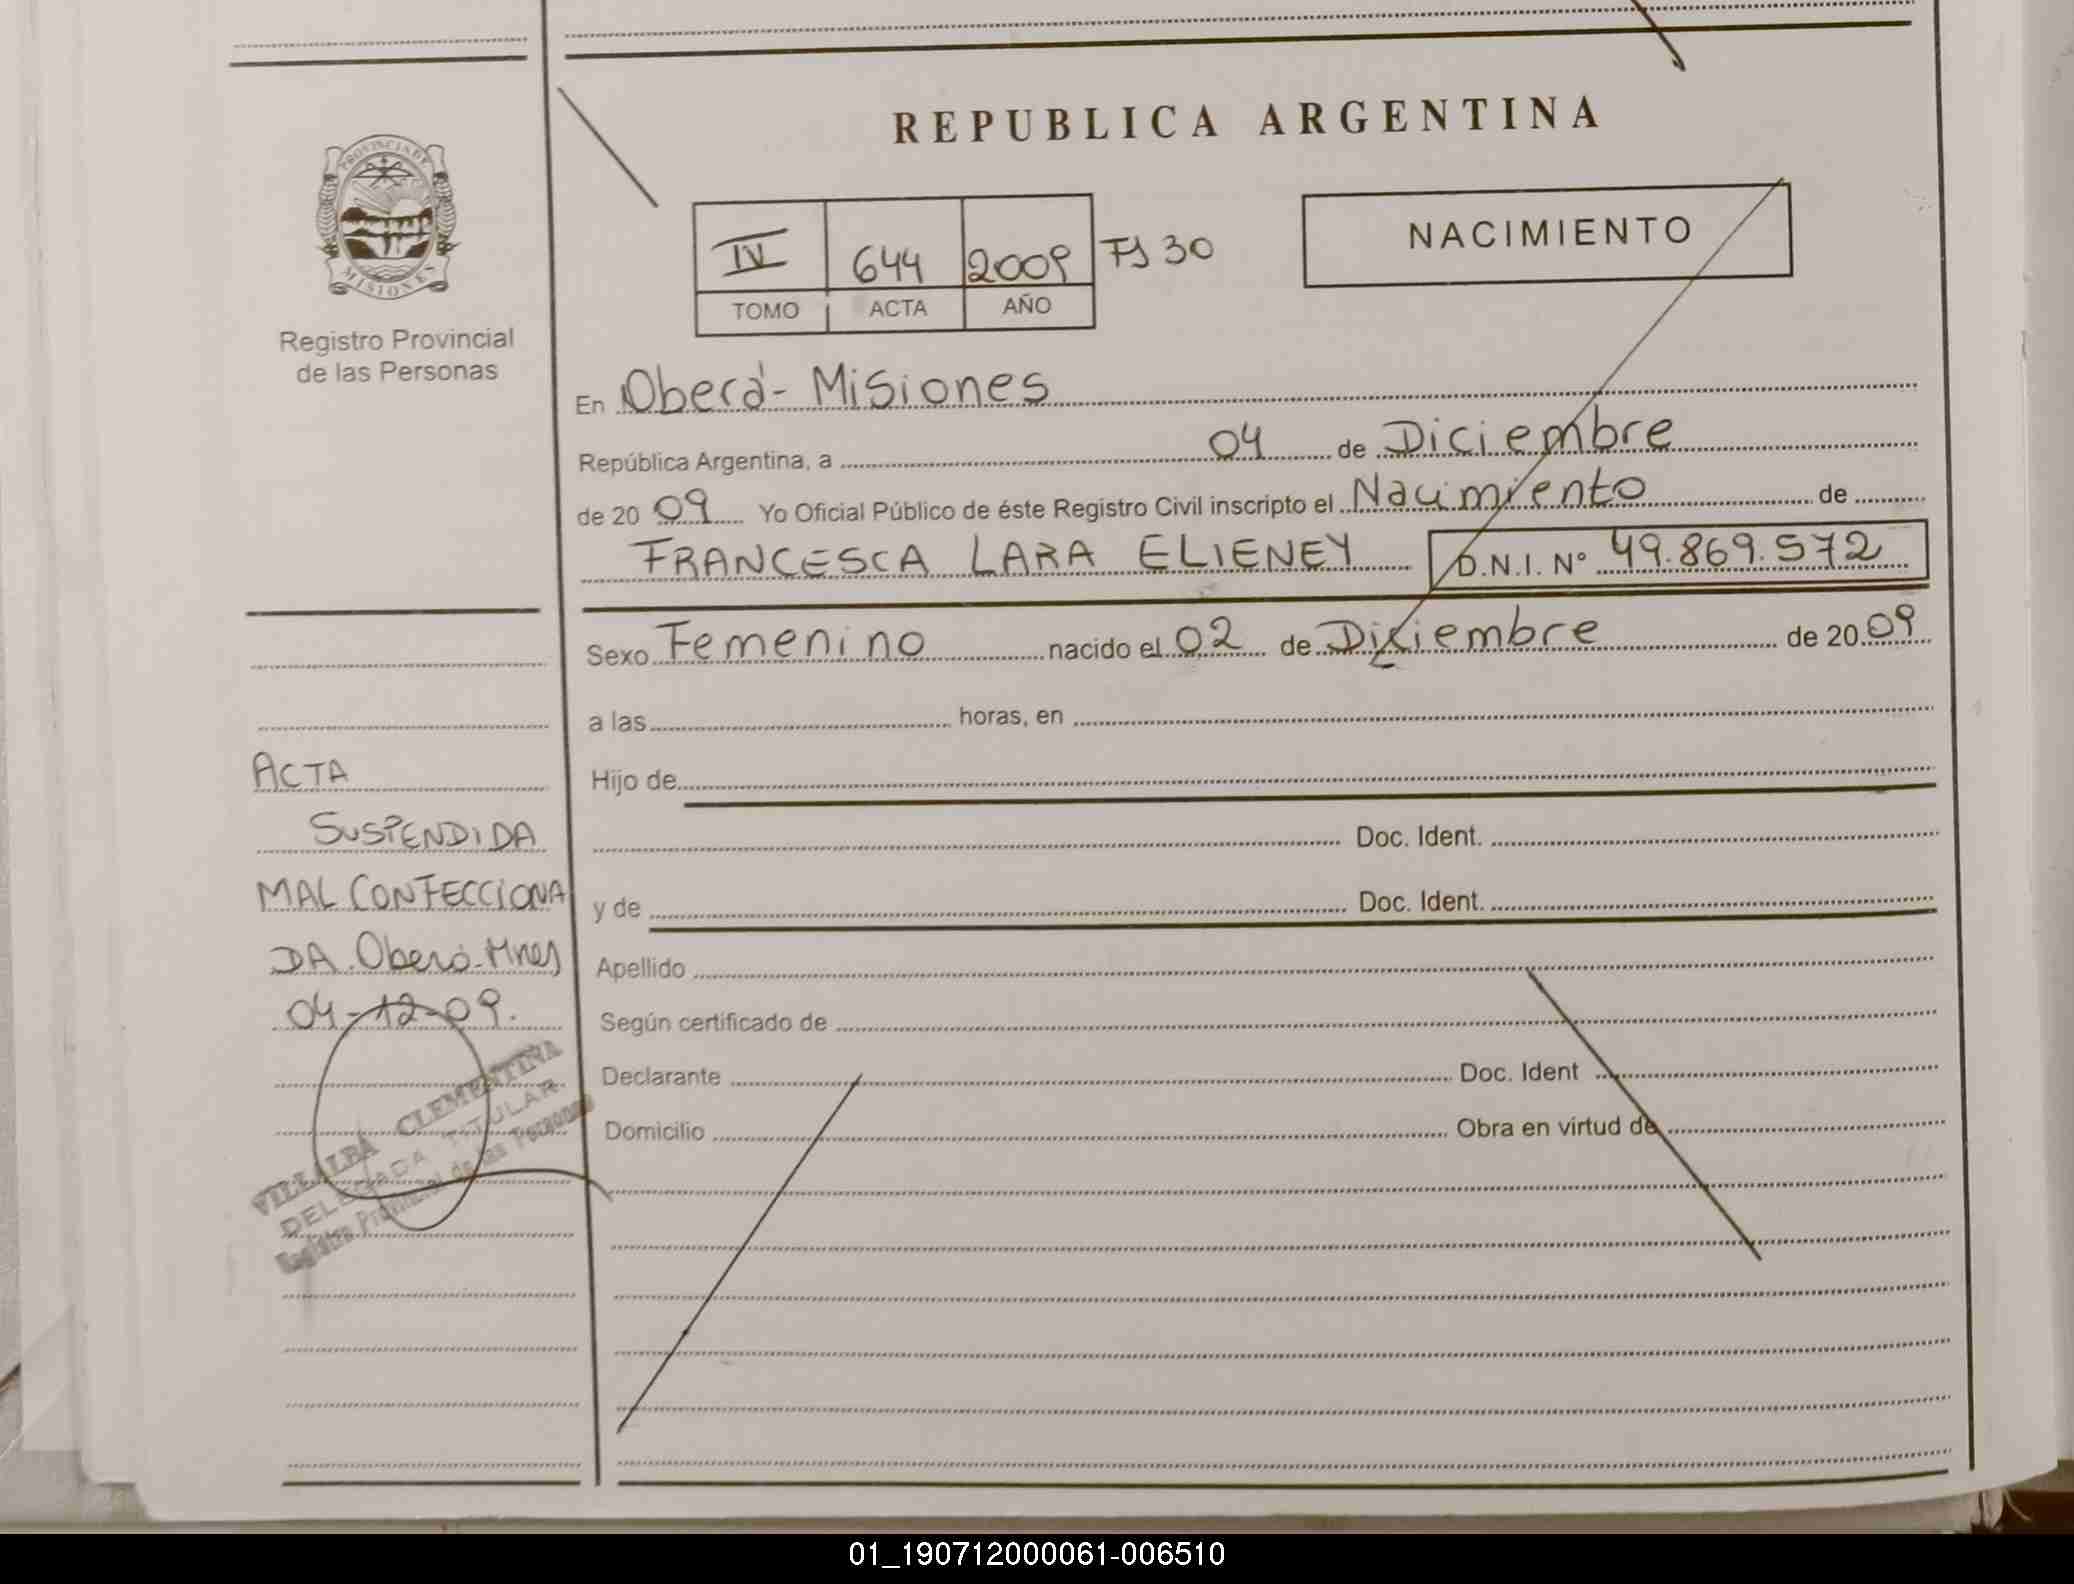 REPUBLICA ARGENTINA
PROVINCIA DE
MISIONES
Registro Provincial
de las Personas
IV 644 2009 FS 30
TOMO ACTA AÑO
NACIMIENTO
En Oberá - Misiones
República Argentina, a 04 de Diciembre
de 20 09 Yo Oficial Público de éste Registro Civil inscripto el Nacimiento de
FRANCESCA LARA ELIENEY D.N.I. Nº 49.869.572
Sexo Femenino nacido el 02 de Diciembre de 20 09
a las horas, en
Hijo de
Doc. Ident.
y de Doc. Ident.
Apellido
Según certificado de
Declarante Doc. Ident
Domicilio Obra en virtud de
ACTA
SUSPENDIDA
MAL CONFECCIONA
DA. Oberá-Mnes
04-12-09.
VILLALBA CLEMENTINA
DELEGADA TITULAR
Registro Provincial de las Personas
01_190712000061-006510